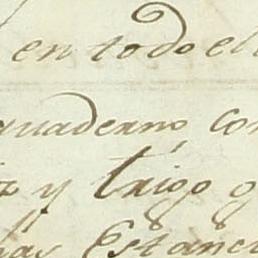 en todo el
quaderno, con
y trigo q
has Estanci